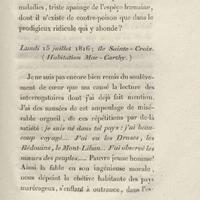 maladies, triste apanage de l'espèce humaine,
dont il n'existe de contre-poison que dans le
prodigieux ridicule qui y abonde?
Lundi 15 juillet 1816; île Sainte-Croix.
(Habitation Mac-Carthy.)
Je ne suis pas encore bien remis du soulève-
ment de cœur que m'a causé la lecture des
interrogatoires dont j'ai déjà fait mention.
J'ai des nausées de cet ampoulage de misé-
rable orgueil, de ces répétitions par-de-là
satiété: je suis né dans tel pays: j'ai beau-
coup voyagé.... J'ai vu les Druses, les
Bédouins, le Mont-Liban... J'ai observé les
mœurs des peuples.... Pauvre jeune homme!
Ainsi la fable en son ingénieuse morale,
nous dépeint la chétive habitante des pays
marécageux, s'enflant à outrance, dans l'es-